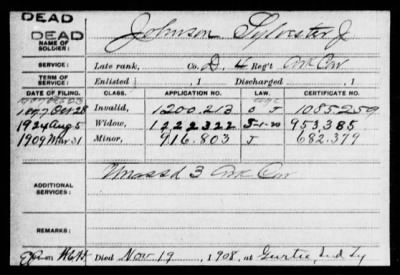 DEAD
DEAD Johnson Sylvester J
NAME OF SOLDIER:
SERVICE: Late rank, Co. D, 4 Reg't Ark Cav
TERM OF SERVICE: Enlisted , 1 Discharged , 1
DATE OF FILING. CLASS. APPLICATION NO. LAW. CERTIFICATE NO.
Invalid, 1200.213 J 1085.259
1924 Aug 5 Widow, 1222322 953,385
1909 Mar 31 Minor, 916.803 J 682.379
ADDITIONAL SERVICES: Unassd 3 Ark Cav
REMARKS:
Died Nov 19, 1908, at